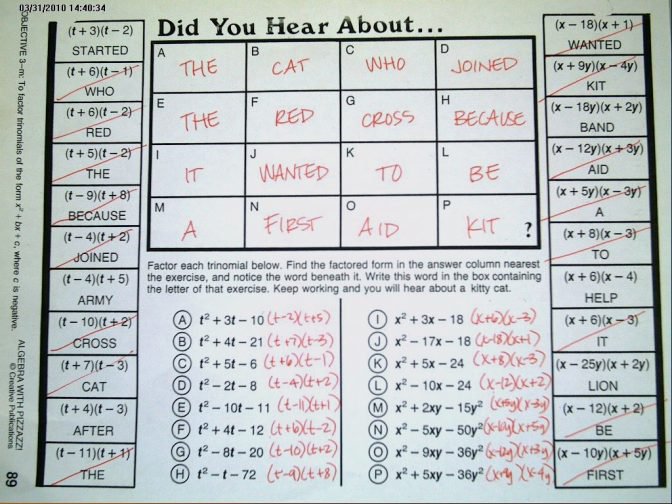 03/31/2010 14:40:34
Did You Hear About...
OBJECTIVE 3–m: To factor trinomials of the form x² + bx + c, where c is negative.
ALGEBRA WITH PIZZAZZ!
© Creative Publications
89
(t + 3)(t – 2)
STARTED
(t + 6)(t – 1)
WHO
(t + 6)(t – 2)
RED
(t + 5)(t – 2)
THE
(t – 9)(t + 8)
BECAUSE
(t – 4)(t + 2)
JOINED
(t – 4)(t + 5)
ARMY
(t – 10)(t + 2)
CROSS
(t + 7)(t – 3)
CAT
(t + 4)(t – 3)
AFTER
(t – 11)(t + 1)
THE
A THE
B CAT
C WHO
D JOINED
E THE
F RED
G CROSS
H BECAUSE
I IT
J WANTED
K TO
L BE
M A
N FIRST
O AID
P KIT ?
Factor each trinomial below. Find the factored form in the answer column nearest
the exercise, and notice the word beneath it. Write this word in the box containing
the letter of that exercise. Keep working and you will hear about a kitty cat.
A t² + 3t – 10 (t-2)(t+5)
B t² + 4t – 21 (t+7)(t-3)
C t² + 5t – 6 (t+6)(t-1)
D t² – 2t – 8 (t-4)(t+2)
E t² – 10t – 11 (t-11)(t+1)
F t² + 4t – 12 (t+6)(t-2)
G t² – 8t – 20 (t-10)(t+2)
H t² – t – 72 (t-9)(t+8)
I x² + 3x – 18 (x+6)(x-3)
J x² – 17x – 18 (x-18)(x+1)
K x² + 5x – 24 (x+8)(x-3)
L x² – 10x – 24 (x-12)(x+2)
M x² + 2xy – 15y² (x+5y)(x-3y)
N x² – 5xy – 50y² (x-10y)(x+5y)
O x² – 9xy – 36y² (x-12y)(x+3y)
P x² + 5xy – 36y² (x+9y)(x-4y)
(x – 18)(x + 1)
WANTED
(x + 9y)(x – 4y)
KIT
(x – 18y)(x + 2y)
BAND
(x – 12y)(x + 3y)
AID
(x + 5y)(x – 3y)
A
(x + 8)(x – 3)
TO
(x + 6)(x – 4)
HELP
(x + 6)(x – 3)
IT
(x – 25y)(x + 2y)
LION
(x – 12)(x + 2)
BE
(x – 10y)(x + 5y)
FIRST